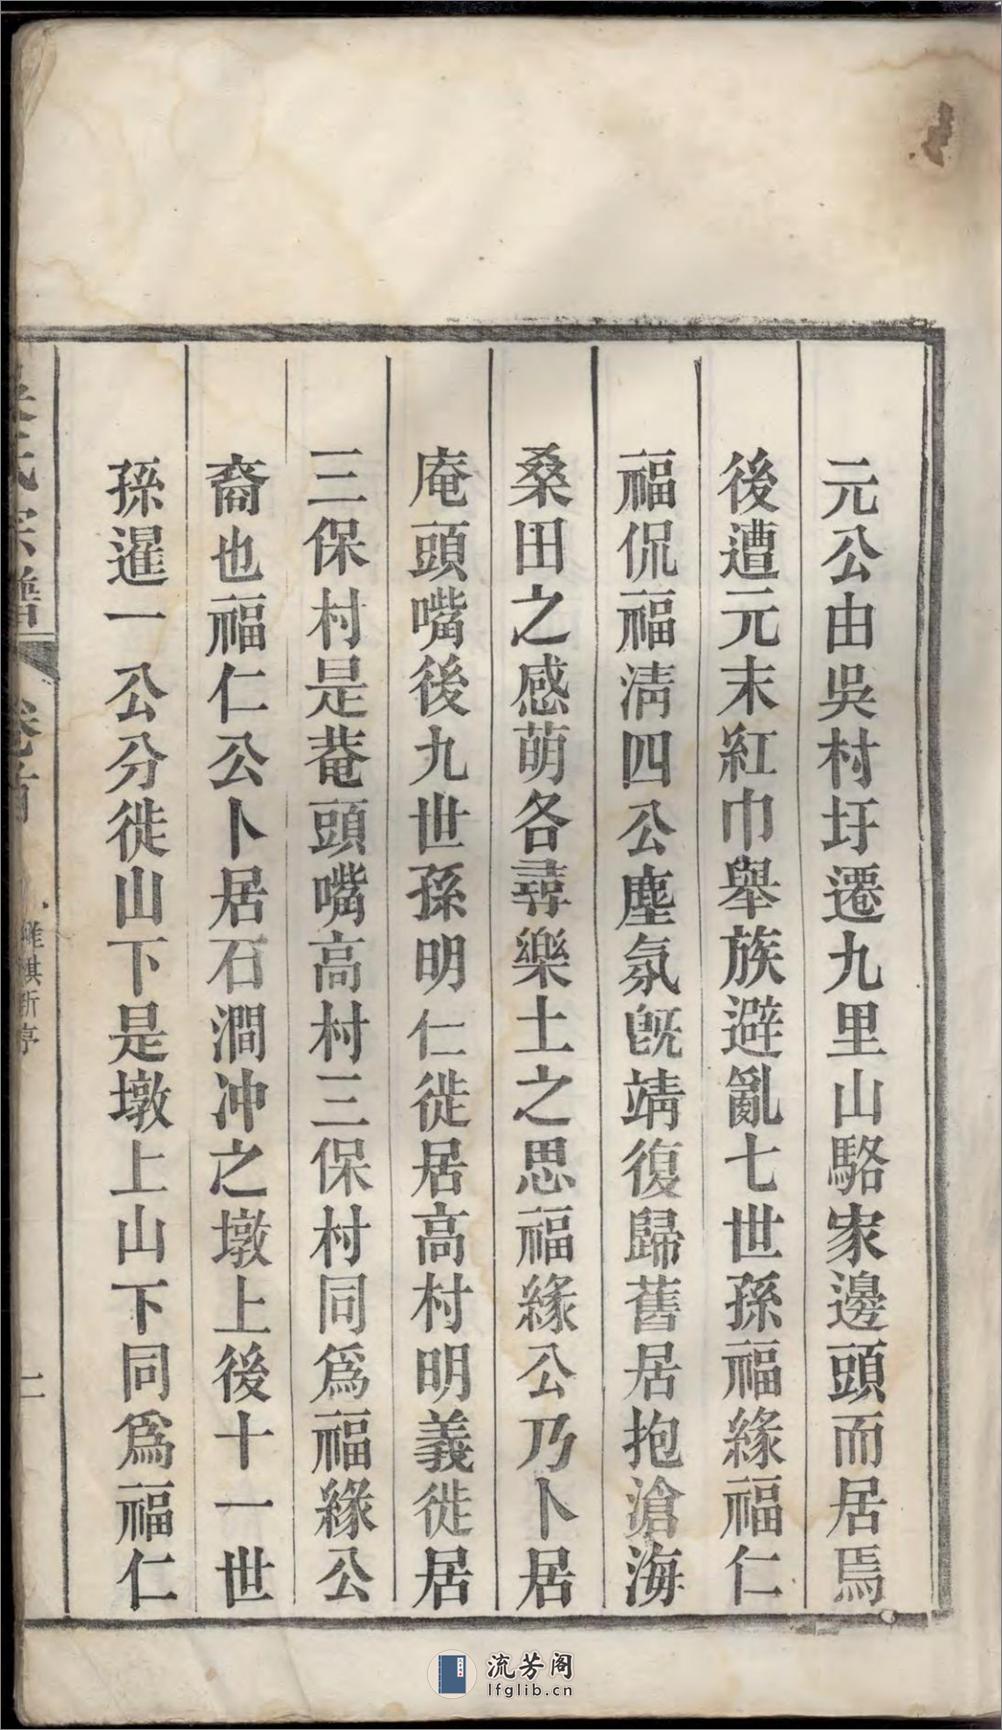 元公由吳村圩遷九里山駱家邊頭而居焉
後遭元末紅巾舉族避亂七世孫福緣福仁
福侃福淸四公塵氛旣靖復歸舊居抱滄海
桑田之感萌各尋樂土之思福緣公乃卜居
庵頭嘴後九世孫明仁徙居高村明義徙居
三保村是菴頭嘴高村三保村同爲福緣公
裔也福仁公卜居石澗冲之墩上後十一世
孫暹一公分徙山下是墩上山下同爲福仁
氏宗譜
卷首
二
流芳阁
lfglib.cn